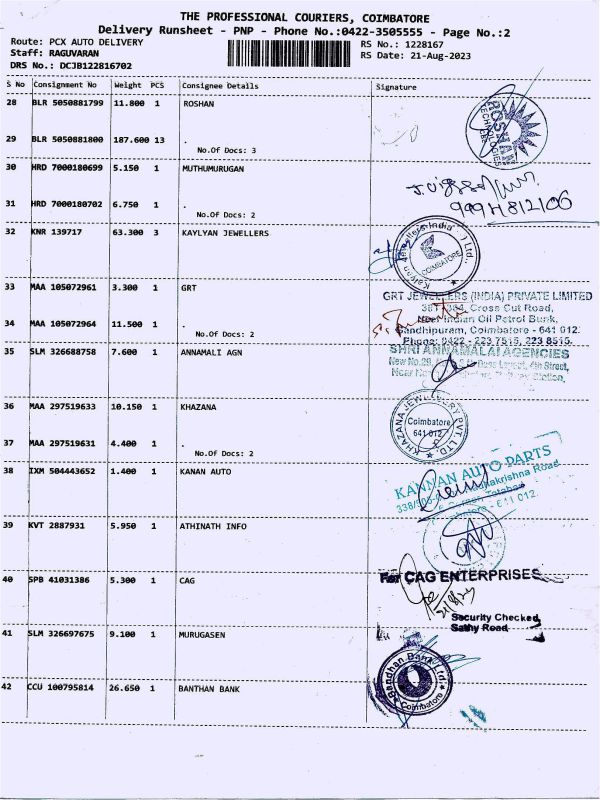 THE PROFESSIONAL COURIERS, COIMBATORE
Delivery Runsheet - PNP - Phone No.:0422-3505555 - Page No.:2
Route: PCX AUTO DELIVERY
RS No.: 1228167
Staff: RAGUVARAN
RS Date: 21-Aug-2023
DRS No.: DCJB122816702
S No Consignment No Weight PCS Consignee Details Signature
28 BLR 5050881799 11.800 1 ROSHAN
ROSHAN
TECHNOLOGIES
CBE
29 BLR 5050881800 187.600 13 .
No.Of Docs: 3
30 HRD 7000180699 5.150 1 MUTHUMURUGAN
31 HRD 7000180702 6.750 1 .
No.Of Docs: 2
32 KNR 139717 63.300 3 KAYLYAN JEWELLERS
COIMBATORE
33 MAA 105072961 3.300 1 GRT
GRT JEWELLERS (INDIA) PRIVATE LIMITED
Cross Cut Road,
Indian Oil Petrol Bunk,
34 MAA 105072964 11.500 1 .
Gandhipuram, Coimbatore - 641 012.
No.Of Docs: 2
Phone: 0422 - 223 7515, 223 8515.
35 SLM 326688758 7.600 1 ANNAMALI AGN
SHRI ANNAMALAI AGENCIES
36 MAA 297519633 10.150 1 KHAZANA
KHAZANA JEWELLERY PVT. LTD.
Coimbatore
641 012
37 MAA 297519631 4.400 1 .
No.Of Docs: 2
38 IXM 504443652 1.400 1 KANAN AUTO
KANNAN AUTO PARTS
39 KVT 2887931 5.950 1 ATHINATH INFO
40 SPB 41031386 5.300 1 CAG
For CAG ENTERPRISES
21/8/23
Security Checked
Sathy Road
41 SLM 326697675 9.100 1 MURUGASEN
42 CCU 100795814 26.650 1 BANTHAN BANK
Bandhan Bank Ltd
Coimbatore